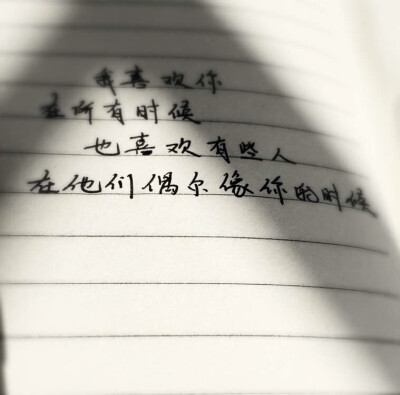 我喜欢你
在所有时候
也喜欢有些人
在他们偶尔像你的时候